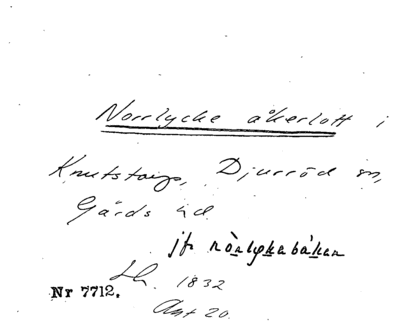 Norrlycke åkerlott i
Knutstorp, Djurröd sn,
Gärds hd
jfr nòrlykabákan
Lh. 1832
Nr 7712.
Akt 20.